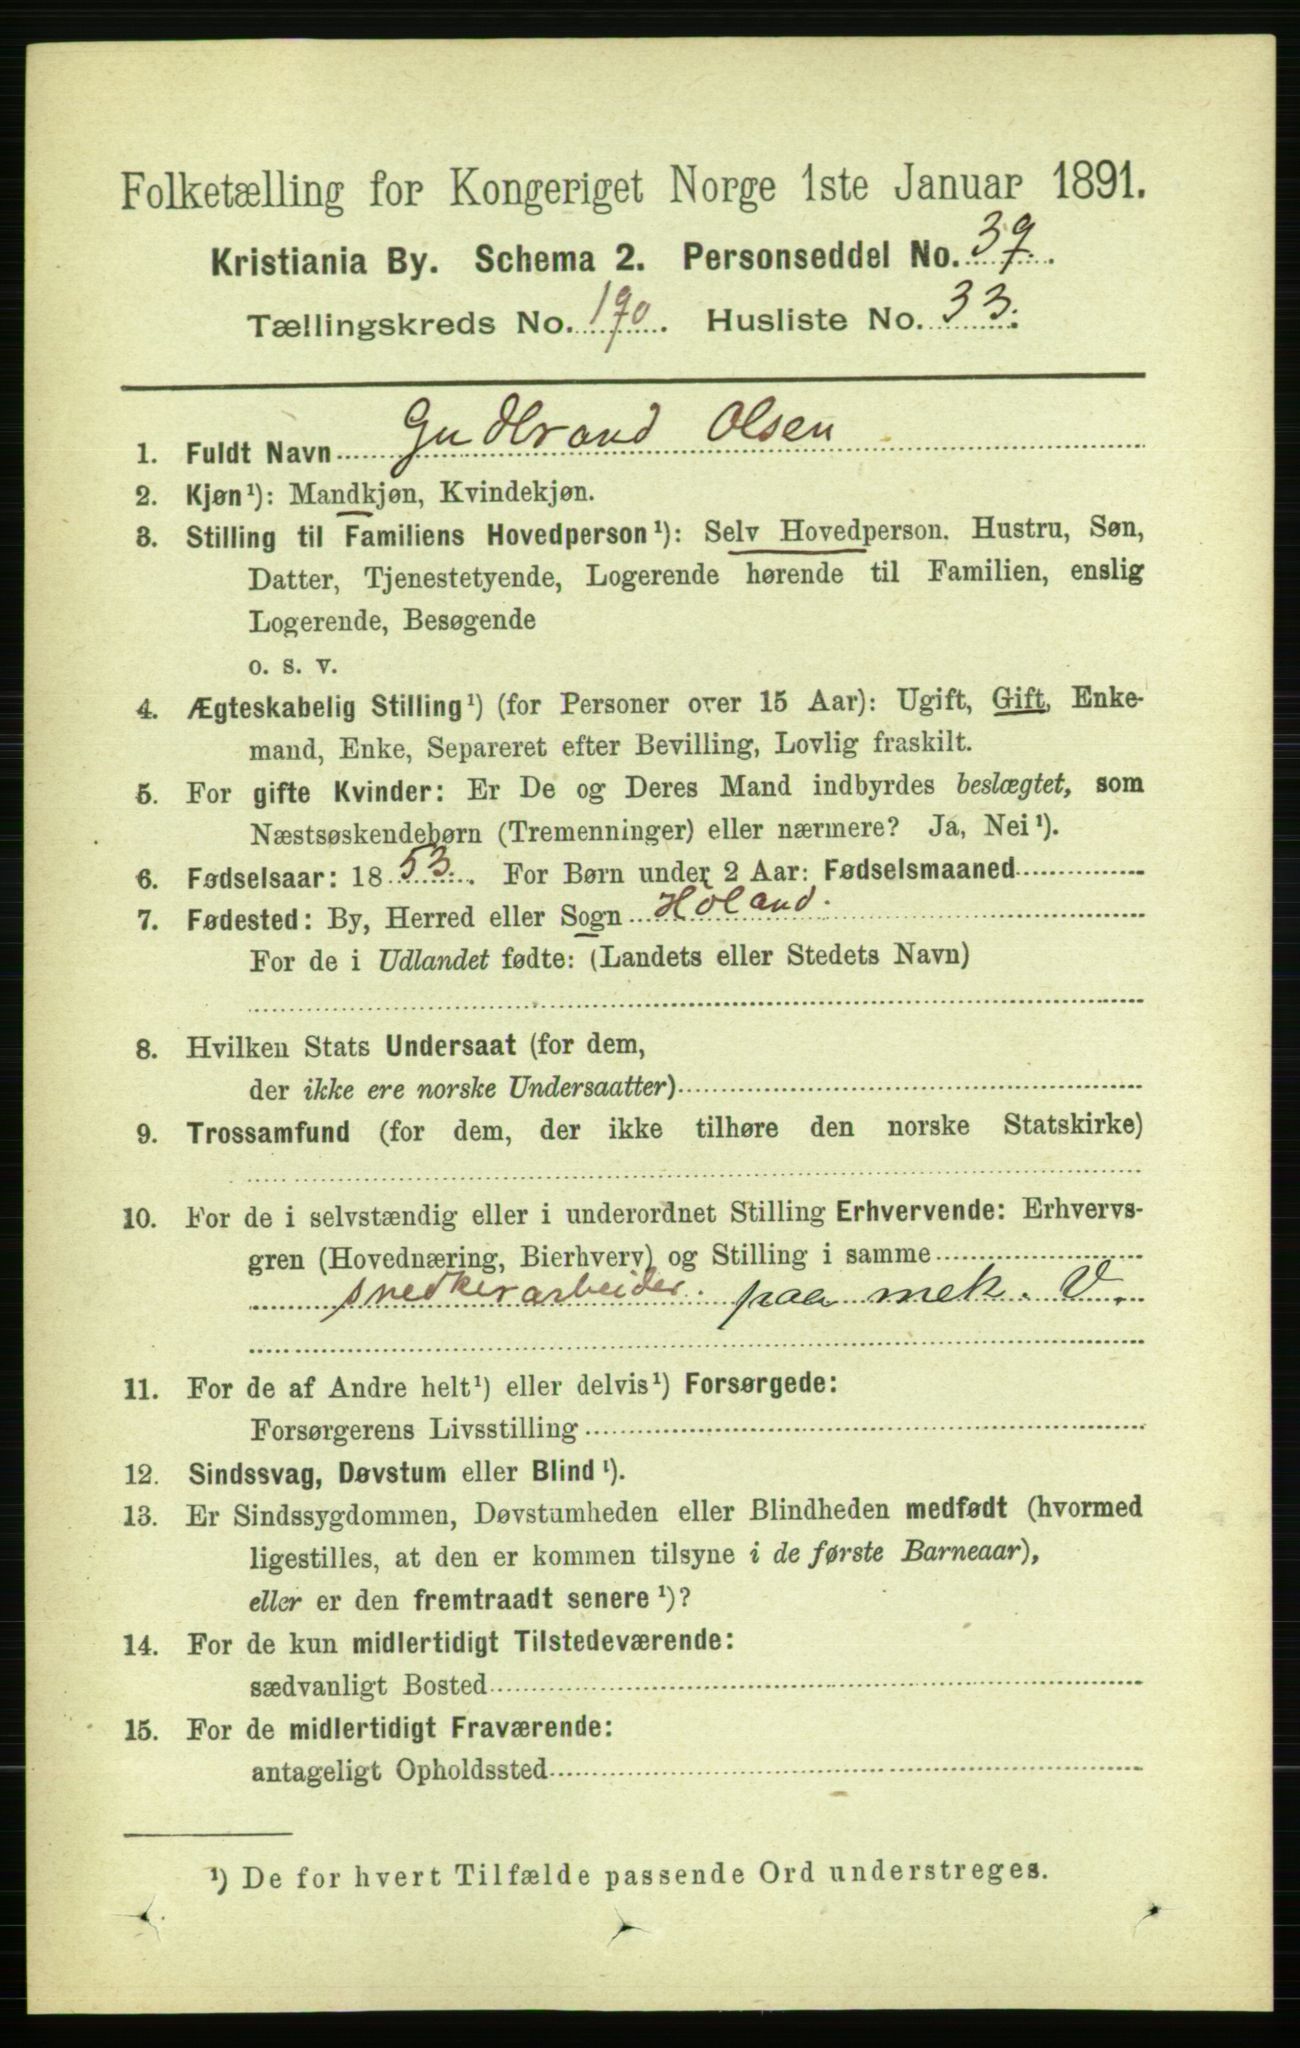 Folketælling for Kongeriget Norge 1ste Januar 1891.
Kristiania By. Schema 2. Personseddel No. 39.
Tællingskreds No. 190. Husliste No. 33.
1. Fuldt Navn Gudbrand Olsen
2. Kjøn¹): Mandkjøn, Kvindekjøn.
3. Stilling til Familiens Hovedperson¹): Selv Hovedperson. Hustru, Søn,
Datter, Tjenestetyende, Logerende hørende til Familien, enslig
Logerende, Besøgende
o. s. v.
4. Ægteskabelig Stilling¹) (for Personer over 15 Aar): Ugift, Gift, Enke-
mand, Enke, Separeret efter Bevilling, Lovlig fraskilt.
5. For gifte Kvinder: Er De og Deres Mand indbyrdes beslægtet, som
Næstsøskendebørn (Tremenninger) eller nærmere? Ja, Nei¹).
6. Fødselsaar: 1853. For Børn under 2 Aar: Fødselsmaaned
7. Fødested: By, Herred eller Sogn Höland.
For de i Udlandet fødte: (Landets eller Stedets Navn)
8. Hvilken Stats Undersaat (for dem,
der ikke ere norske Undersaatter)
9. Trossamfund (for dem, der ikke tilhøre den norske Statskirke)
10. For de i selvstændig eller i underordnet Stilling Erhvervende: Erhvervs-
gren (Hovednæring, Bierhverv) og Stilling i samme
snedkerarbeider. paa mek. V.
11. For de af Andre helt¹) eller delvis¹) Forsørgede:
Forsørgerens Livsstilling
12. Sindssvag, Døvstum eller Blind¹).
13. Er Sindssygdommen, Døvstumheden eller Blindheden medfødt (hvormed
ligestilles, at den er kommen tilsyne i de første Barneaar),
eller er den fremtraadt senere¹)?
14. For de kun midlertidigt Tilstedeværende:
sædvanligt Bosted
15. For de midlertidigt Fraværende:
antageligt Opholdssted
¹) De for hvert Tilfælde passende Ord understreges.